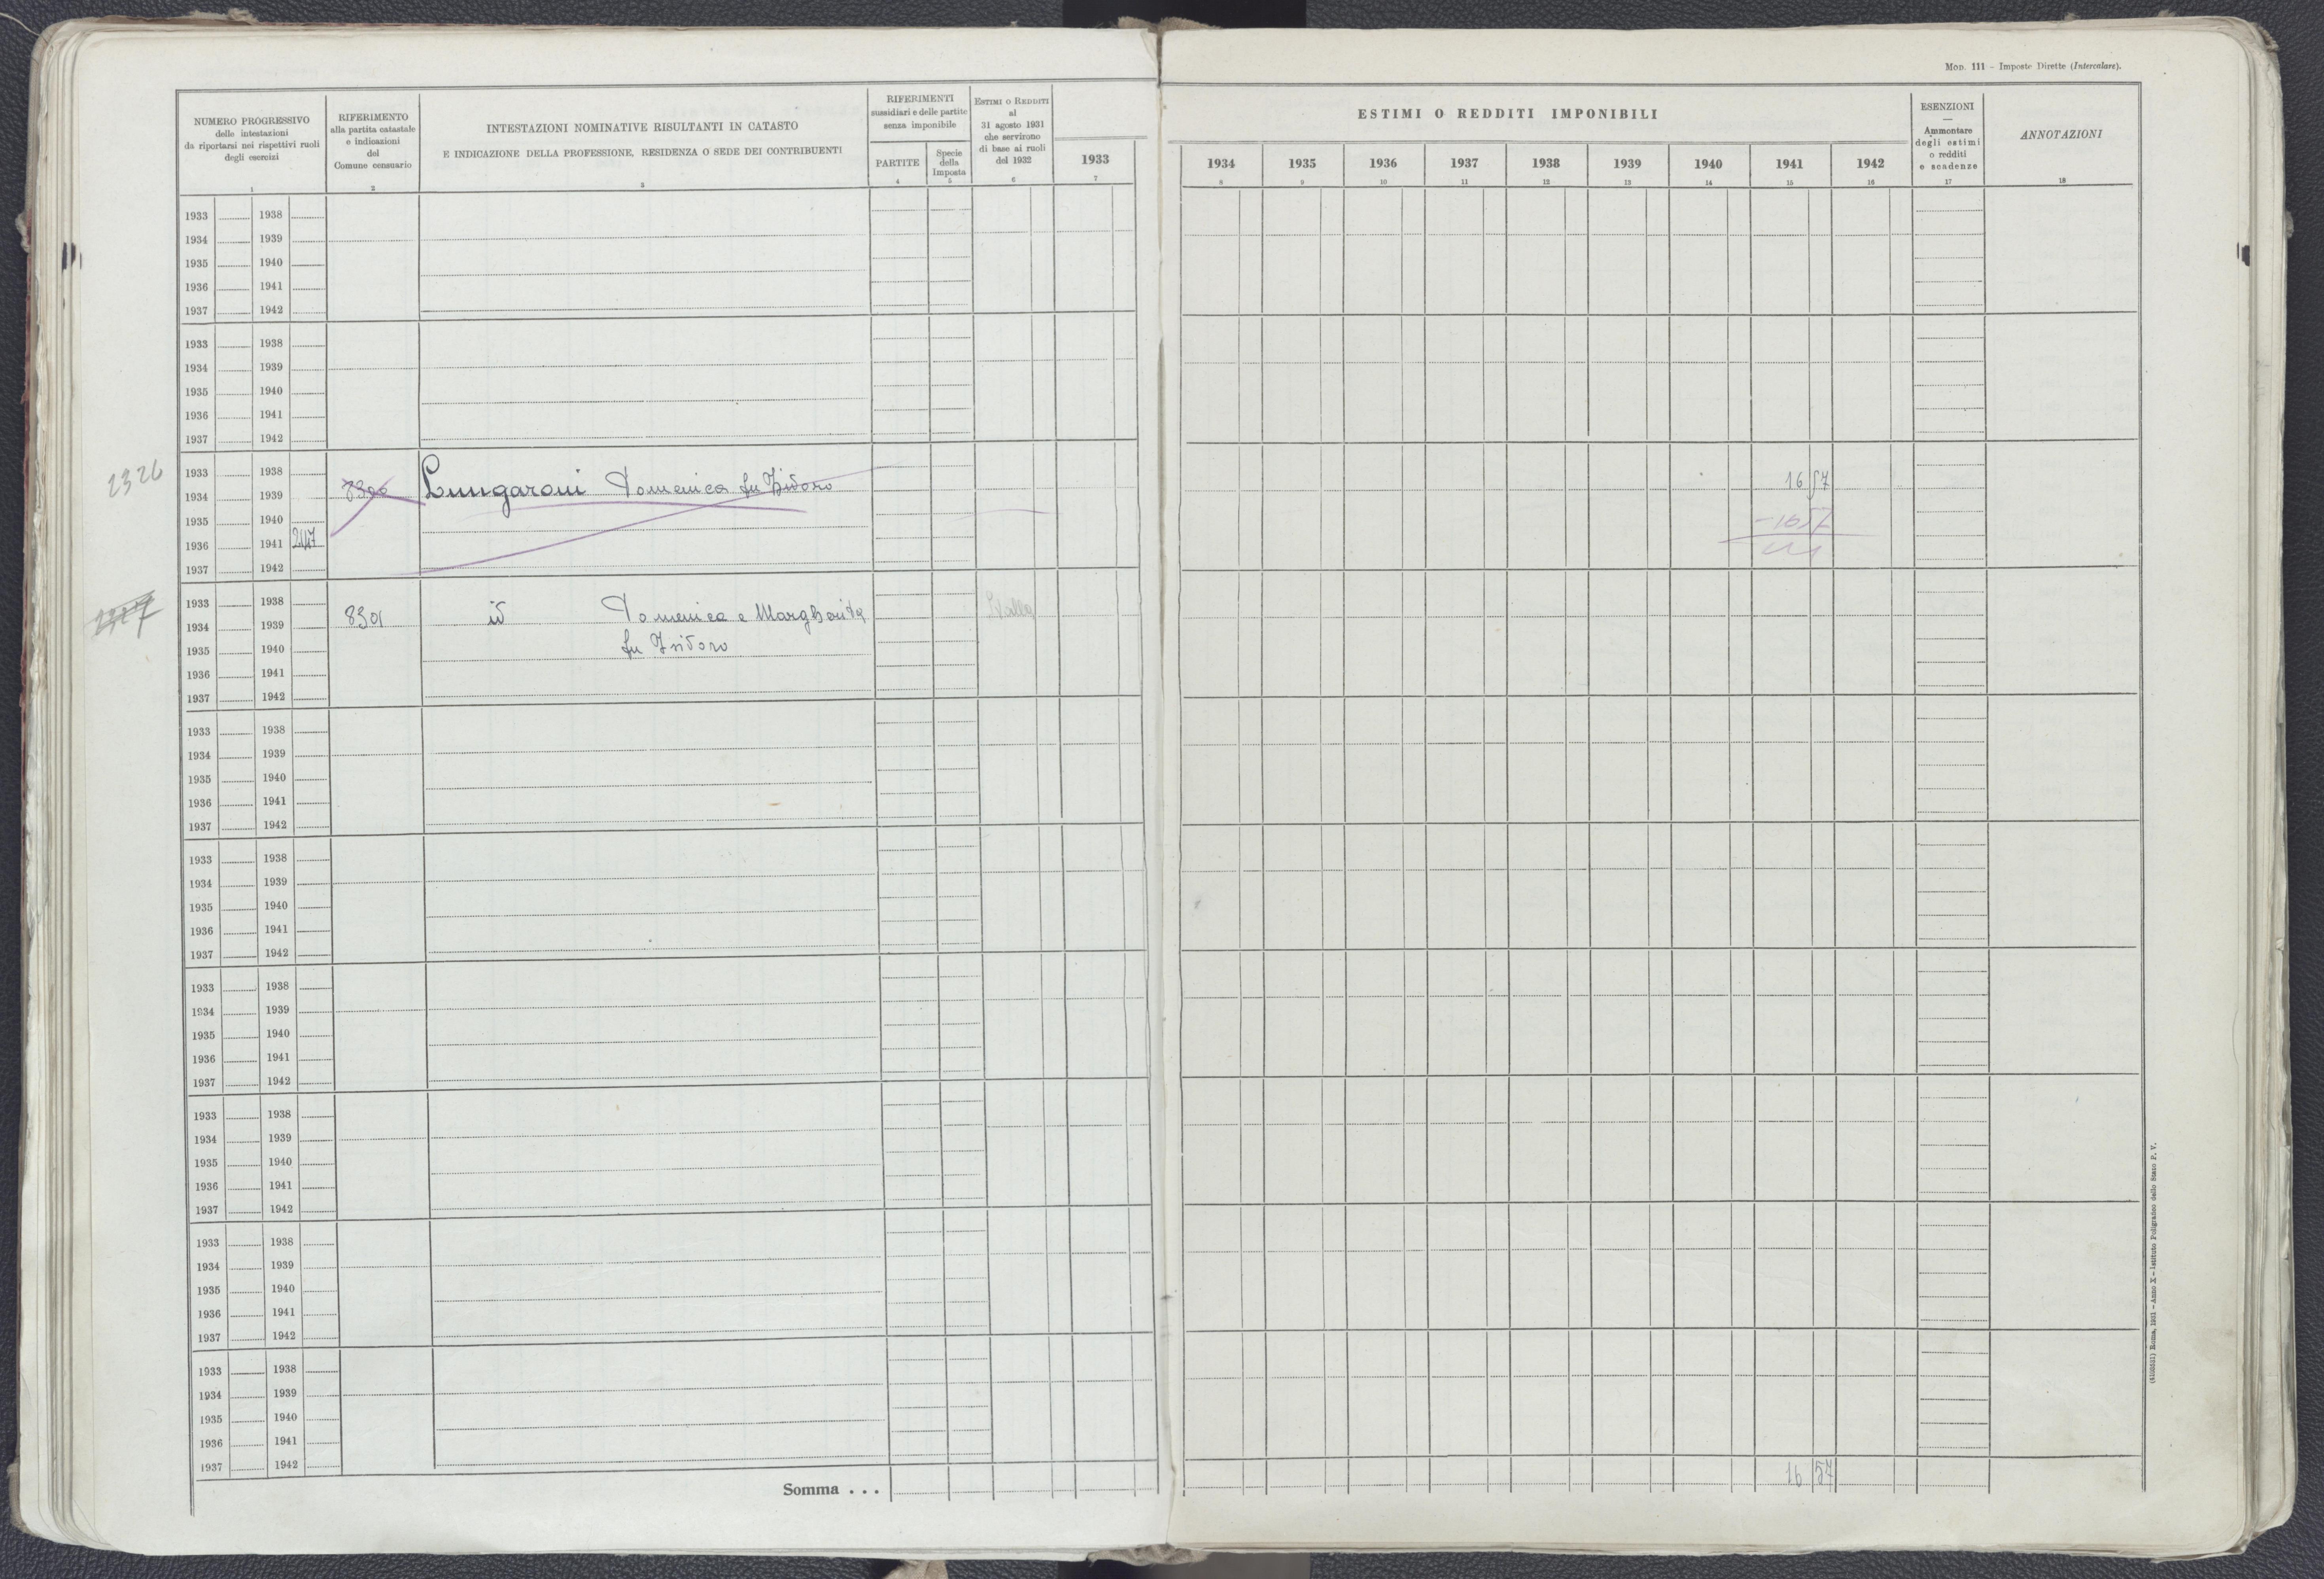 Mon. 111 – Imposte Dirette (Intercalare).
NUMERO PROGRESSIVO
delle intestazioni
da riportarsi nei rispettivi ruoli
degli esercizi
1
RIFERIMENTO
alla partita catastale
e indicazioni
del
Comune censuario
2
INTESTAZIONI NOMINATIVE RISULTANTI IN CATASTO
E INDICAZIONE DELLA PROFESSIONE, RESIDENZA O SEDE DEI CONTRIBUENTI
3
RIFERIMENTI
sussidiari e delle partite
senza imponibile
PARTITE
4
Specie
della
Imposta
5
ESTIMI O REDDITI
al
31 agosto 1931
che servirono
di base ai ruoli
del 1932
6
1933
7
ESTIMI O REDDITI IMPONIBILI
1934 1935 1936 1937 1938 1939 1940 1941 1942
8 9 10 11 12 13 14 15 16
ESENZIONI
—
Ammontare
degli estimi
o redditi
e scadenze
17
ANNOTAZIONI
18
1933 1938
1934 1939
1935 1940
1936 1941
1937 1942
1933 1938
1934 1939
1935 1940
1936 1941
1937 1942
2326
1933 1938
1934 1939 8300 Lungaroni Domenica fu Isidoro 16 57
1935 1940 – 16 57
1936 1941 2117
1937 1942
2327
1933 1938
1934 1939 8301 id Domenica e Margherita Stalla
1935 1940 fu Isidoro
1936 1941
1937 1942
1933 1938
1934 1939
1935 1940
1936 1941
1937 1942
1933 1938
1934 1939
1935 1940
1936 1941
1937 1942
1933 1938
1934 1939
1935 1940
1936 1941
1937 1942
1933 1938
1934 1939
1935 1940
1936 1941
1937 1942
1933 1938
1934 1939
1935 1940
1936 1941
1937 1942
1933 1938
1934 1939
1935 1940
1936 1941
1937 1942
Somma . . . 16 57
Roma, 1931 – Anno X – Istituto Poligrafico dello Stato P. V.